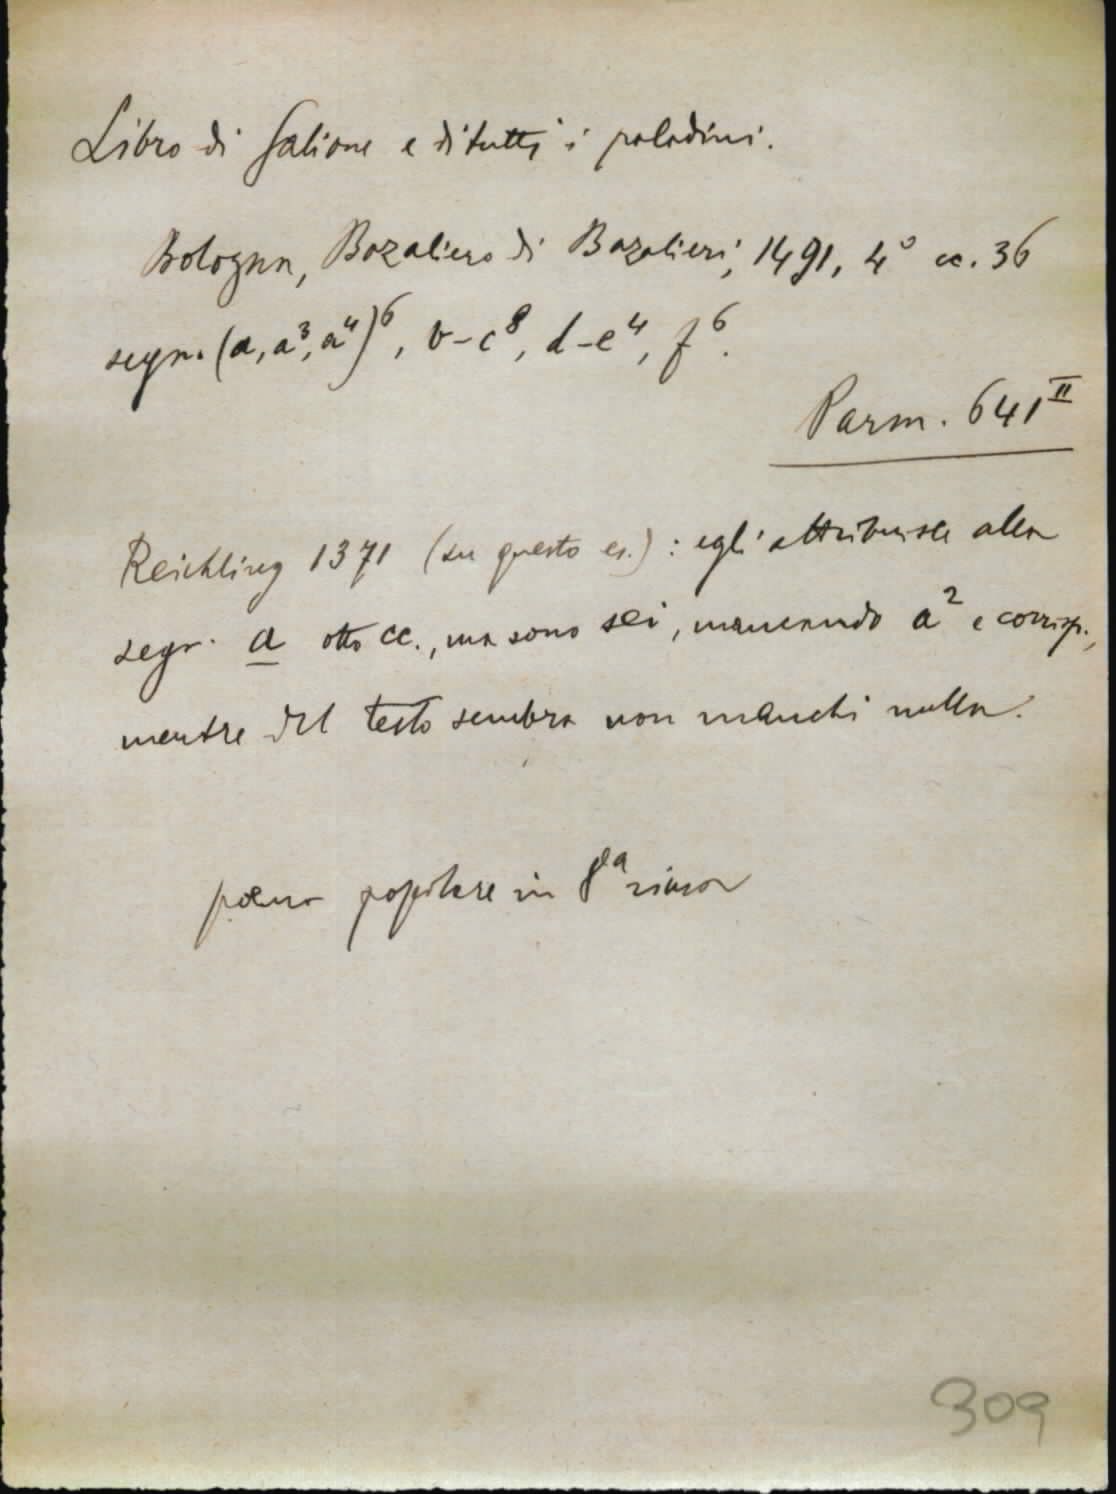 Libro di Galione e di tutti i paladini.
Bologna, Bazaliero di Bazalieri, 1491, 4° cc. 36
segn. (a, a³, a⁴)⁶, b-c⁸, d-e⁴, f⁶.
Parm. 641ᴵᴵ
Reichling 1371 (su questo es.): egli attribuisce alla
segn. a otto cc., ma sono sei, mancando a² e corrisp.,
mentre del testo sembra non manchi nulla.
poema popolare in 8ᵃ rima
309